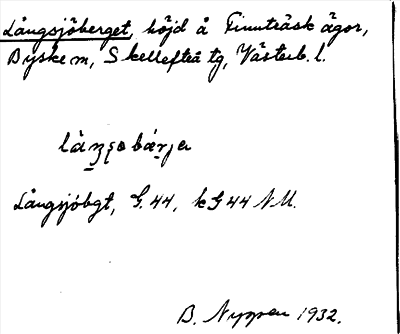 Långsjöberget, höjd å Finnträsk ägor,
Byske sn, Skellefteå tg, Västerb. l.
Långsjöbgt, G. 44, kG44 NU.
B. Nygren 1932.